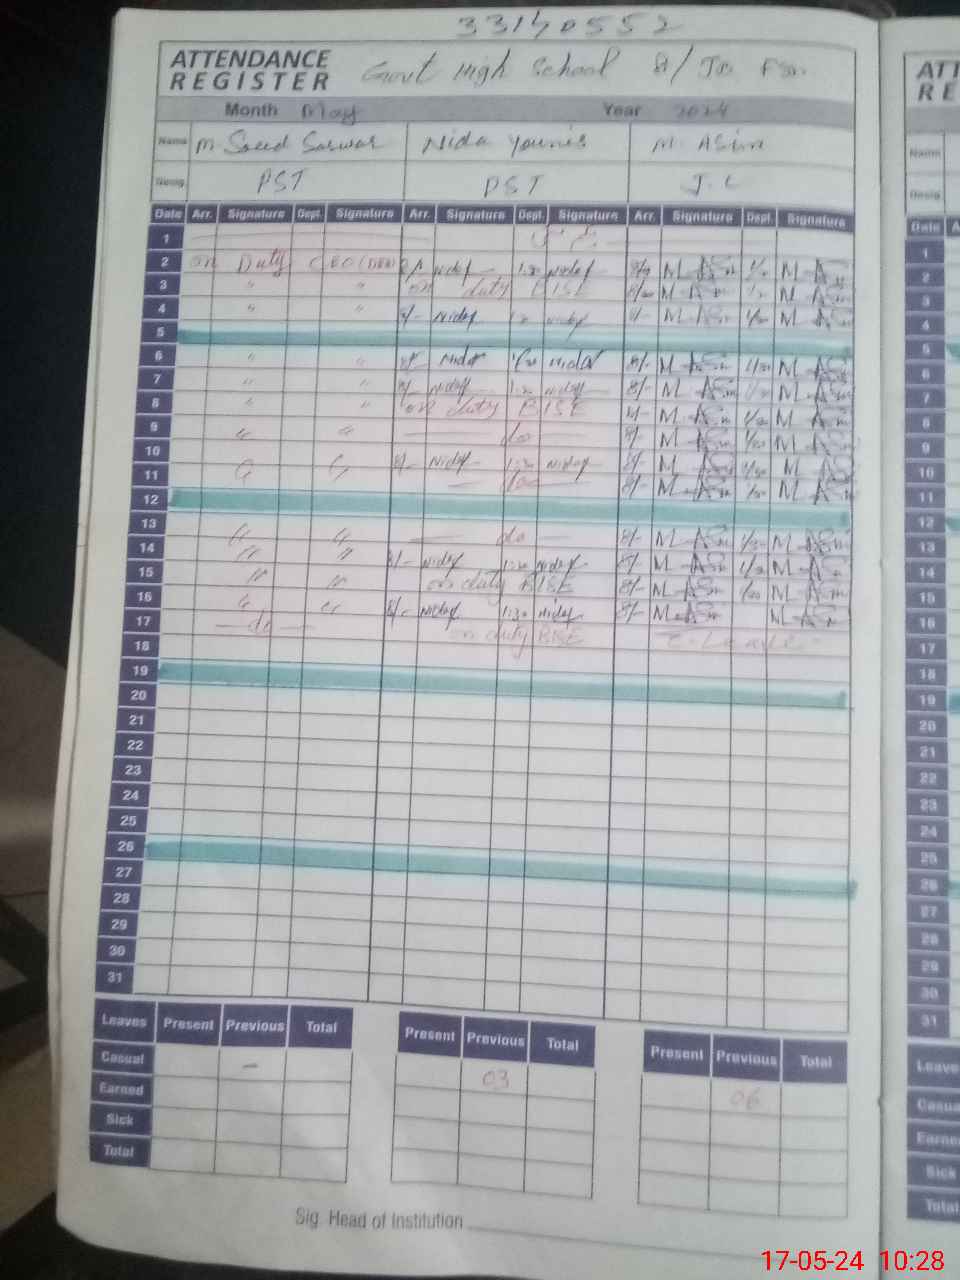 33140552
ATTENDANCE REGISTER Govt High School
Month May Year 2024
Name M. Saeed Sarwar Nida Younis M. Asim
Desig. PST PST J.C
Date Arr. Signature Dept. Signature Arr. Signature Dept. Signature Arr. Signature Dept. Signature
1
2 on Duty CEO(DEA) Nidaf 1:30 Nidaf M-Asim M-Asim
3 " " on duty BISE M-Asim M-Asim
4 " " 8/- Nidaf Nidaf 8/- M-Asim 1/30 M-Asim
5
6 " " 8/- Nidaf 1/30 Nidaf 8/- M-Asim 1/30 M-Asim
7 " " 8/- Nidaf 1:30 Nidaf 8/- M-Asim M-Asim
8 " " on duty BISE 8/- M-Asim 1/30 M-Asim
9 " " do 8/- M-Asim 1/30 M-Asim
10 8/- Nidaf 1:30 Nidaf 8/- M-Asim 1/30 M-Asim
11 " " do 8/- M-Asim 1/30 M-Asim
12
13 " " do 8/- M-Asim 1/30 M-Asim
14 " " 8/- Nidaf 1:30 Nidaf 8/- M-Asim 1/30 M-Asim
15 " " on duty BISE 8/- M-Asim 1/30 M-Asim
16 " " 8/- Nidaf 1:30 Nidaf 8/- M-Asim M-Asim
17 do on duty BISE C-Leave
18
19
20
21
22
23
24
25
26
27
28
29
30
31
Leaves Present Previous Total Present Previous Total Present Previous Total
Casual - 03 06
Earned
Sick
Total
Sig. Head of Institution
ATT
RE
Name
Desig.
Date A
1
2
3
4
5
6
7
8
9
10
11
12
13
14
15
16
17
18
19
20
21
22
23
24
25
26
27
28
29
30
31
Leave
Casua
Earne
Sick
Total
17-05-24 10:28